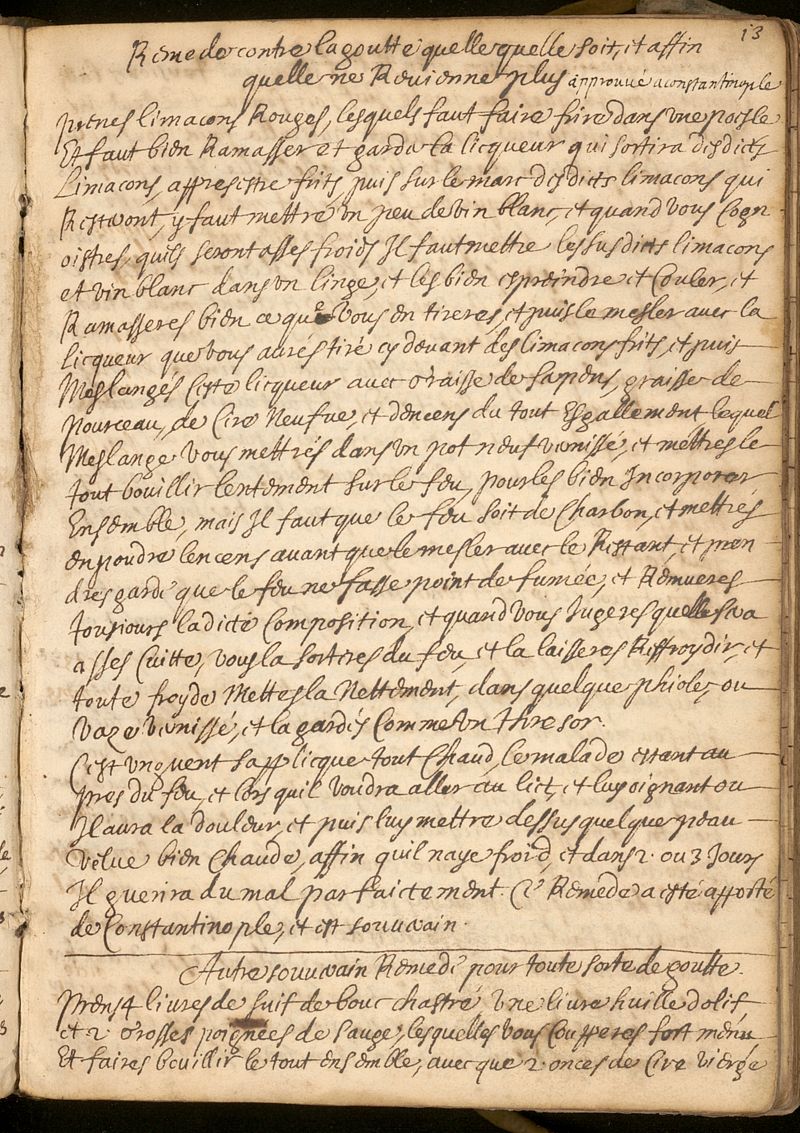 13
Remede contre la goutte quelle quelle soit, et affin
quelle ne Revienne plus approuvé a constantinople
prenes limacons Rouges, lesquels faut faire frire dans une poisle
Et faut bien Ramasser et garder la licqueur qui sortira desdicts
Limacons, appres estre frits, puis sur le marc desdicts limacons qui
Resteront, y faut mettre un peu de vin blanc, et quand vous Cogn
oistres, quils seront asses froids Il faut mettre les susdicts limacons
et vin blanc dans un linge, et les bien espreindre et Couler, et
Ramasseres bien ce que vous en tireres, et puis le mesler avec la
licqueur que vous aurés tiré cy devant des limacons frits, et puis
Meslangés Ceste licqueur avec graisse de sapens, graisse de
pourceau, de Cire Neufve, et dencens du tout Esgallement lequel
Meslange vous mettrés dans un pot neuf vernissé, et mettres le
tout bouillir lentement sur le feu, pour les bien Incorporer
Ensemble, mais Il faut que le feu soit de Charbon, et mettrés
en poudre lencens avant que le mesler avec le Restant, et pren
dres garde que le feu ne fasse point de fumée, et Remueres
tousiours la dicte Composition, et quand vous Jugeres quelle sera
asses Cuitte, vous la sortires du feu, et la laisseres Reffroydir, et
toute froyde Mettes la Nettement, dans quelque phiole, ou
vaze vernissé, et la gardés Comme un thresor.
Cest unguent sapplicque tout Chaud, le malade estant au
pres du feu, et lors quil voudra aller au lict, et luy oignant ou
Il aura la douleur, et puis luy mettre dessus quelque peau
velue bien Chaude, affin quil naye froid, et dans 2. ou 3 Jours
Il guerira du mal parfaictement. Ce Remede a esté apporté
de Constantinople, et est souverain.
Autre souverain Remede pour toute sorte de goutte.
Prens 4 livres de suif de bouc chastré une livre huille dolif
et 2. grosses poignées de sauge, lesquelles vous Coupperes fort menu
Et faires bouillir le tout ensemble, avec que 2. onces de Cire vierge